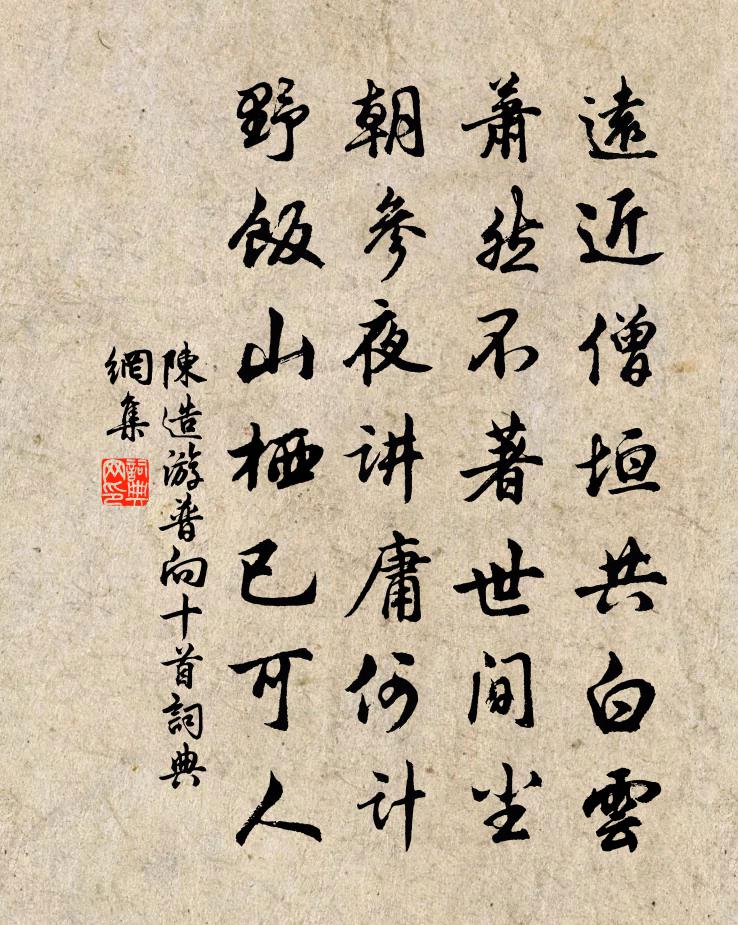 遠近僧垣共白雲
蕭然不著世間尘
朝參夜讲庸何计
野飯山栖已可人
陳造游普向十首詞典
網集
詞典网印